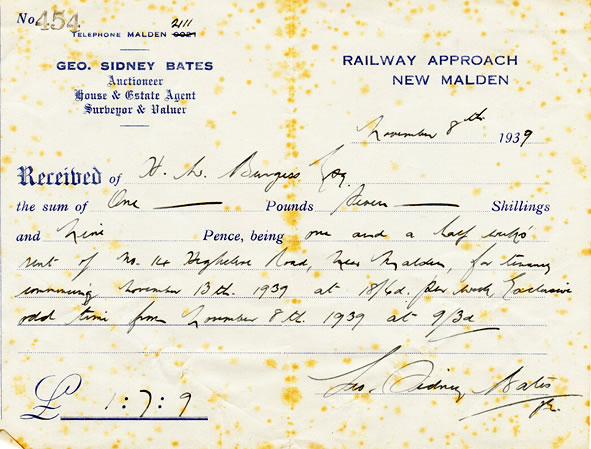 No. 454.
2111
TELEPHONE MALDEN 0021
GEO. SIDNEY BATES
Auctioneer
House & Estate Agent
Surveyor & Valuer
RAILWAY APPROACH
NEW MALDEN
November 8th. 1939
Received of H. L. Burgess Esq.
the sum of One Pounds Seven Shillings
and Nine Pence, being one and a half week's
rent of No. 14 Road, New Malden, for tenancy
commencing November 13th. 1939 at 18/6d. Per week, Exclusive
odd time from November 8th. 1939 at 9/3d
Geo. Sidney Bates
£ 1:7:9